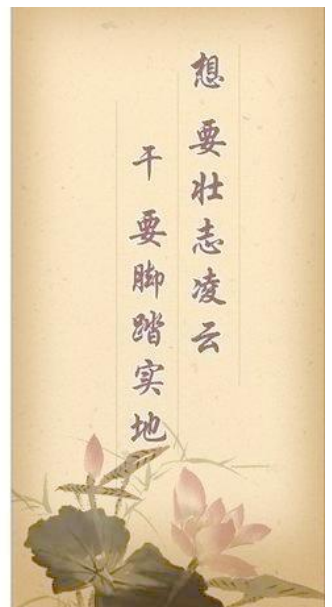 想要壮志凌云
干要脚踏实地